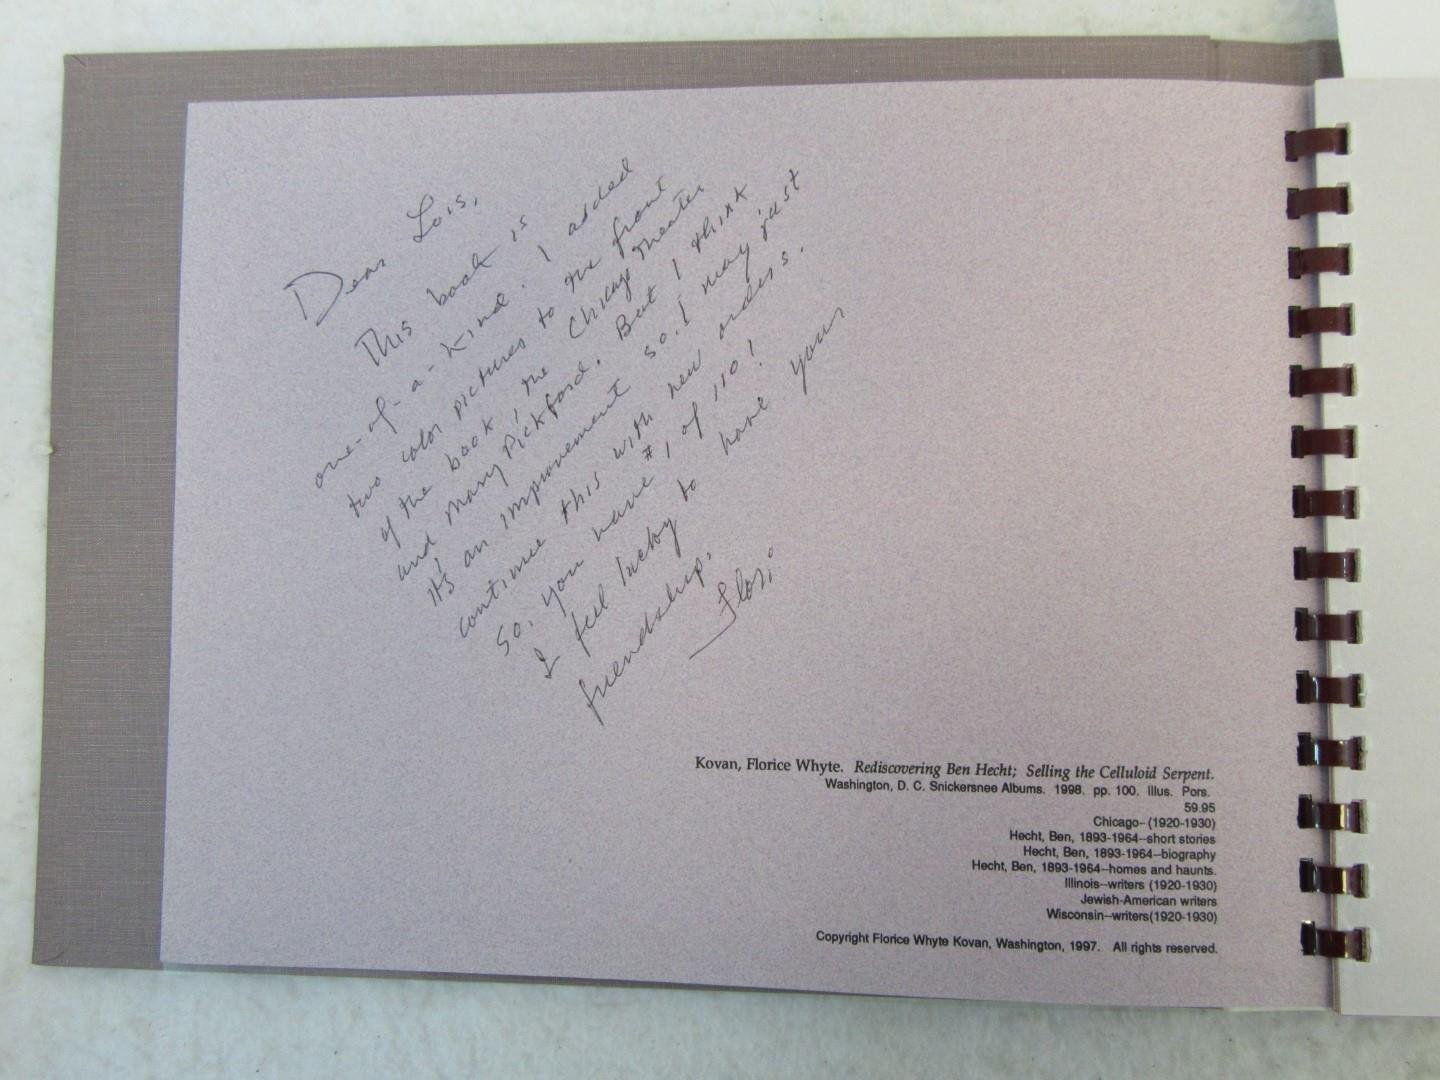 Dear Lois,
This book is
one-of-a-kind. I added
two color pictures to the front
of the book, the Chicago Theater
and Mary Pickford. But I think
it's an improvement so I may just
continue this with new orders.
So, you have #1 of 110!
I feel lucky to have your
friendship,
Flori
Kovan, Florice Whyte. Rediscovering Ben Hecht; Selling the Celluloid Serpent.
Washington, D. C. Snickersnee Albums. 1998. pp. 100. Illus. Pors.
59.95
Chicago--(1920-1930)
Hecht, Ben, 1893-1964--short stories
Hecht, Ben, 1893-1964--biography
Hecht, Ben, 1893-1964--homes and haunts.
Illinois--writers (1920-1930)
Jewish-American writers
Wisconsin--writers(1920-1930)
Copyright Florice Whyte Kovan, Washington, 1997. All rights reserved.